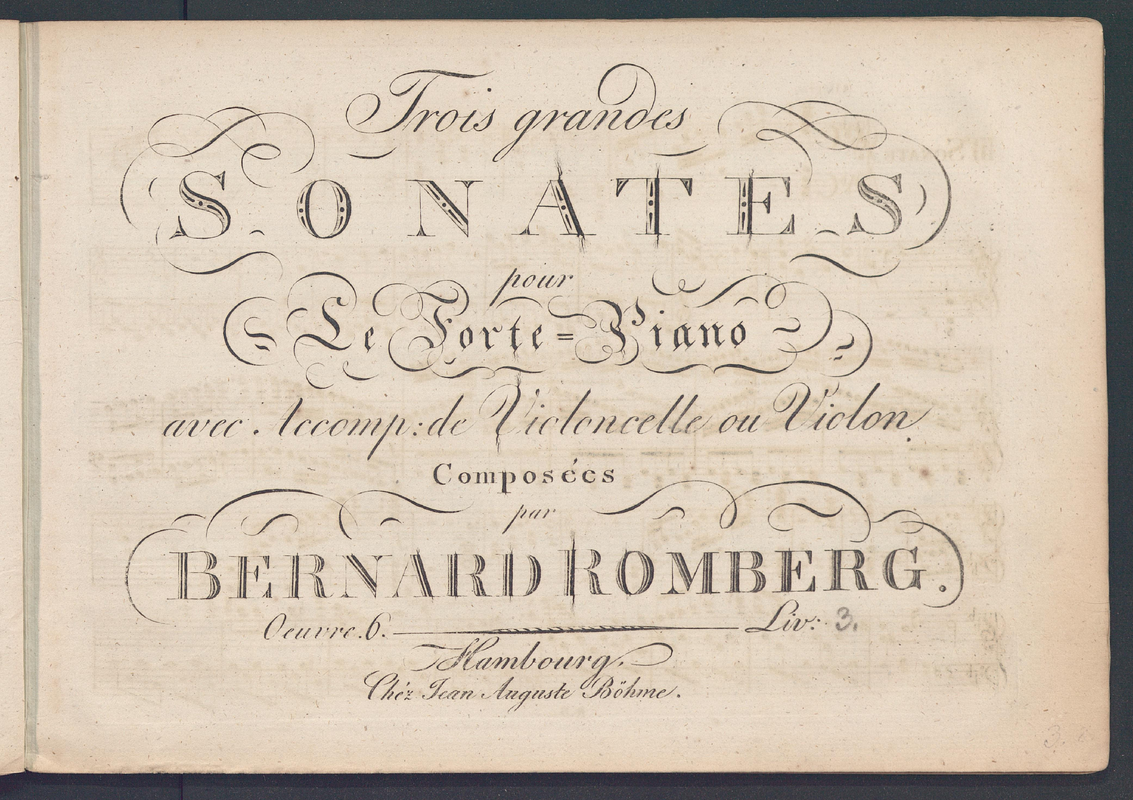 Trois grandes
SONATES
pour
Le Forte=Piano
avec Accomp: de Violoncelle ou Violon.
Composées
par
BERNARD ROMBERG.
Oeuvre. 6. Liv: 3.
Hambourg.
Chéz Jean Auguste Böhme.